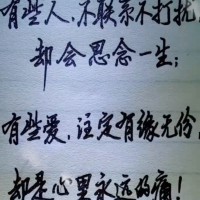 有些人,不联系不打扰,
却会思念一生;
有些爱,注定有缘无份,
却是心里永远的痛!